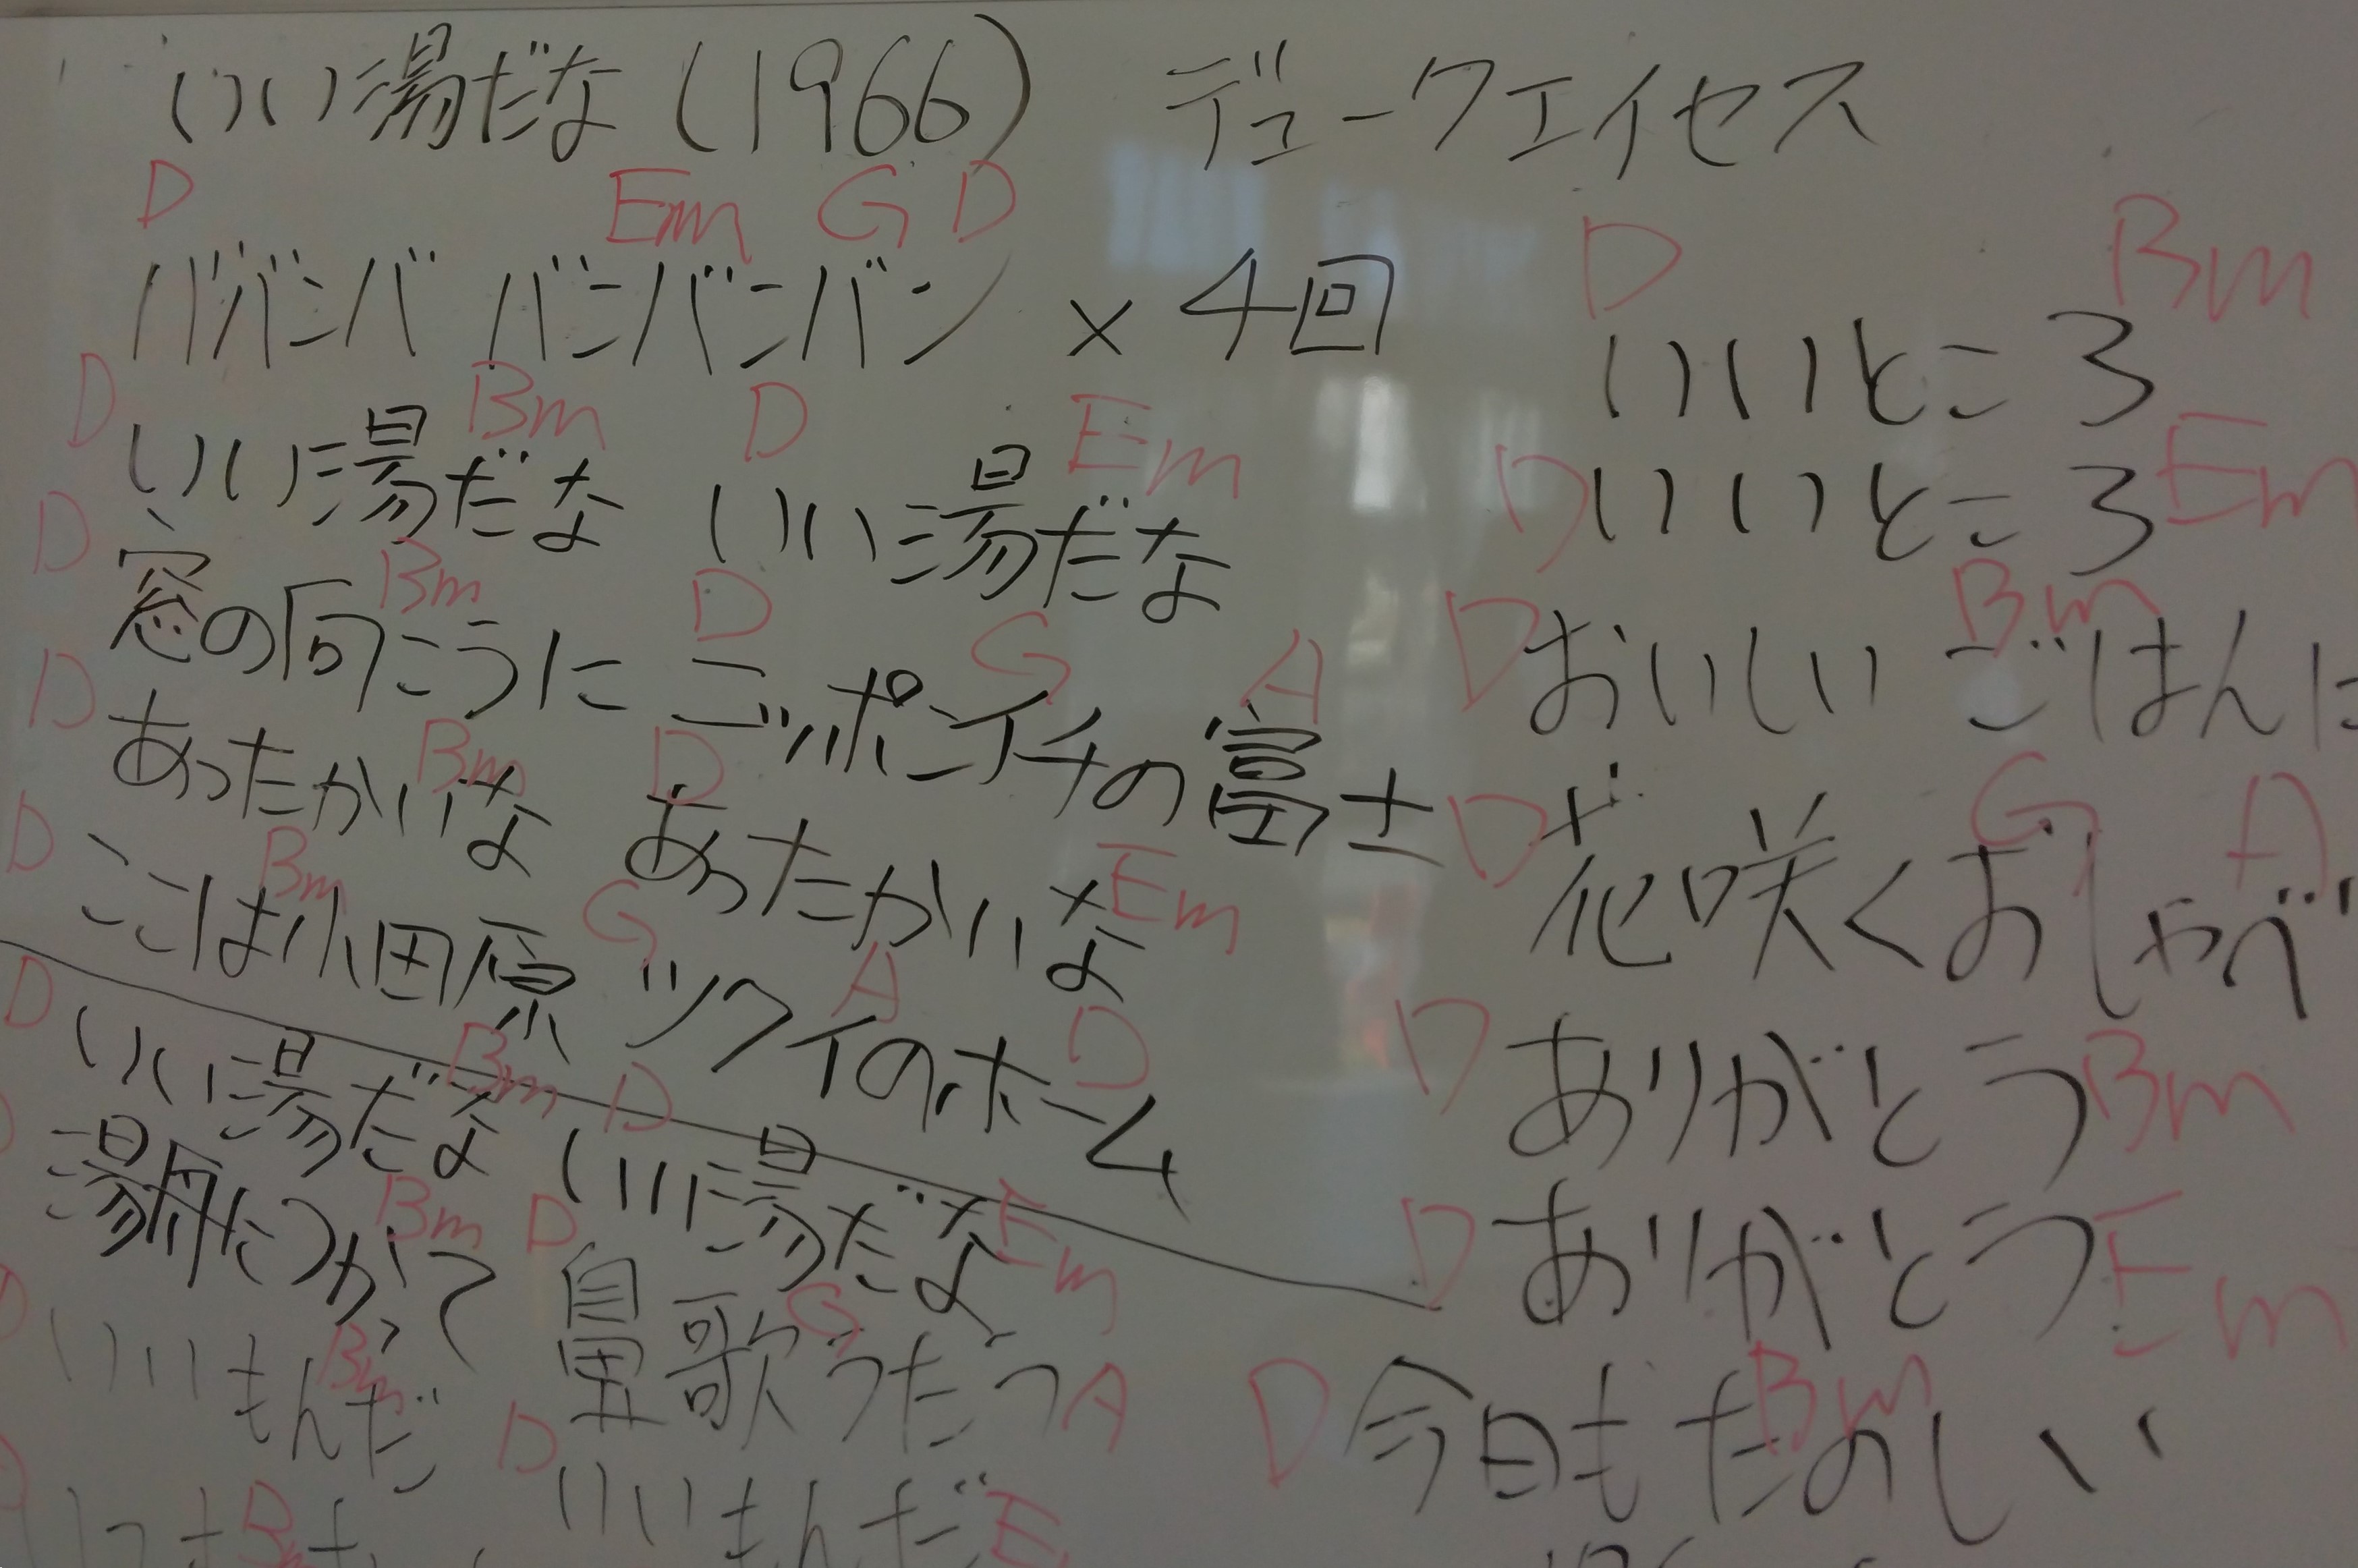 いい湯だな (1966) デュークエイセス
D Em G D
ババンバ バンバンバン × 4回
D Bm D Em
いい湯だな いい湯だな
D Bm D G A
窓の向こうに ニッポンイチの富士
D Bm D Em
あったかいな あったかいな
D Bm G A D
ここは小田原 ツクイのホーム
D Bm D Em
いい湯だな いい湯だな
D Bm D G A
湯舟につかって 鼻歌うたう
D Bm D E
いいもんだ いいもんだ
D Bm
D Bm
いいところ
D Em
いいところ
D Bm
おいしい ごはんに
D G A
花咲くおしゃべ
D Bm
ありがとう
D Em
ありがとう
D Bm
今日もたのしい